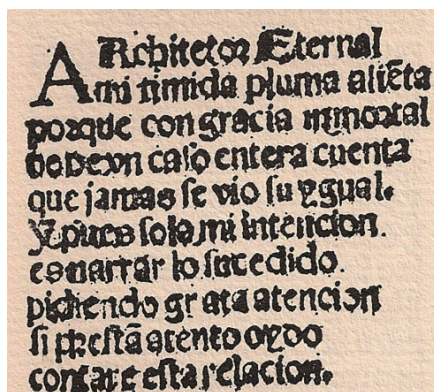 ARchitetor Eternal
A mi timida pluma aliẽta
porque con gracia immortal
de deᴠn caso entera cuenta
que jamas se vio su ygual.
Y pues solo mi intencion.
es narrar lo sucedido.
pidiendo grata atencion
si prestã atento oydo
contare esta relacion.